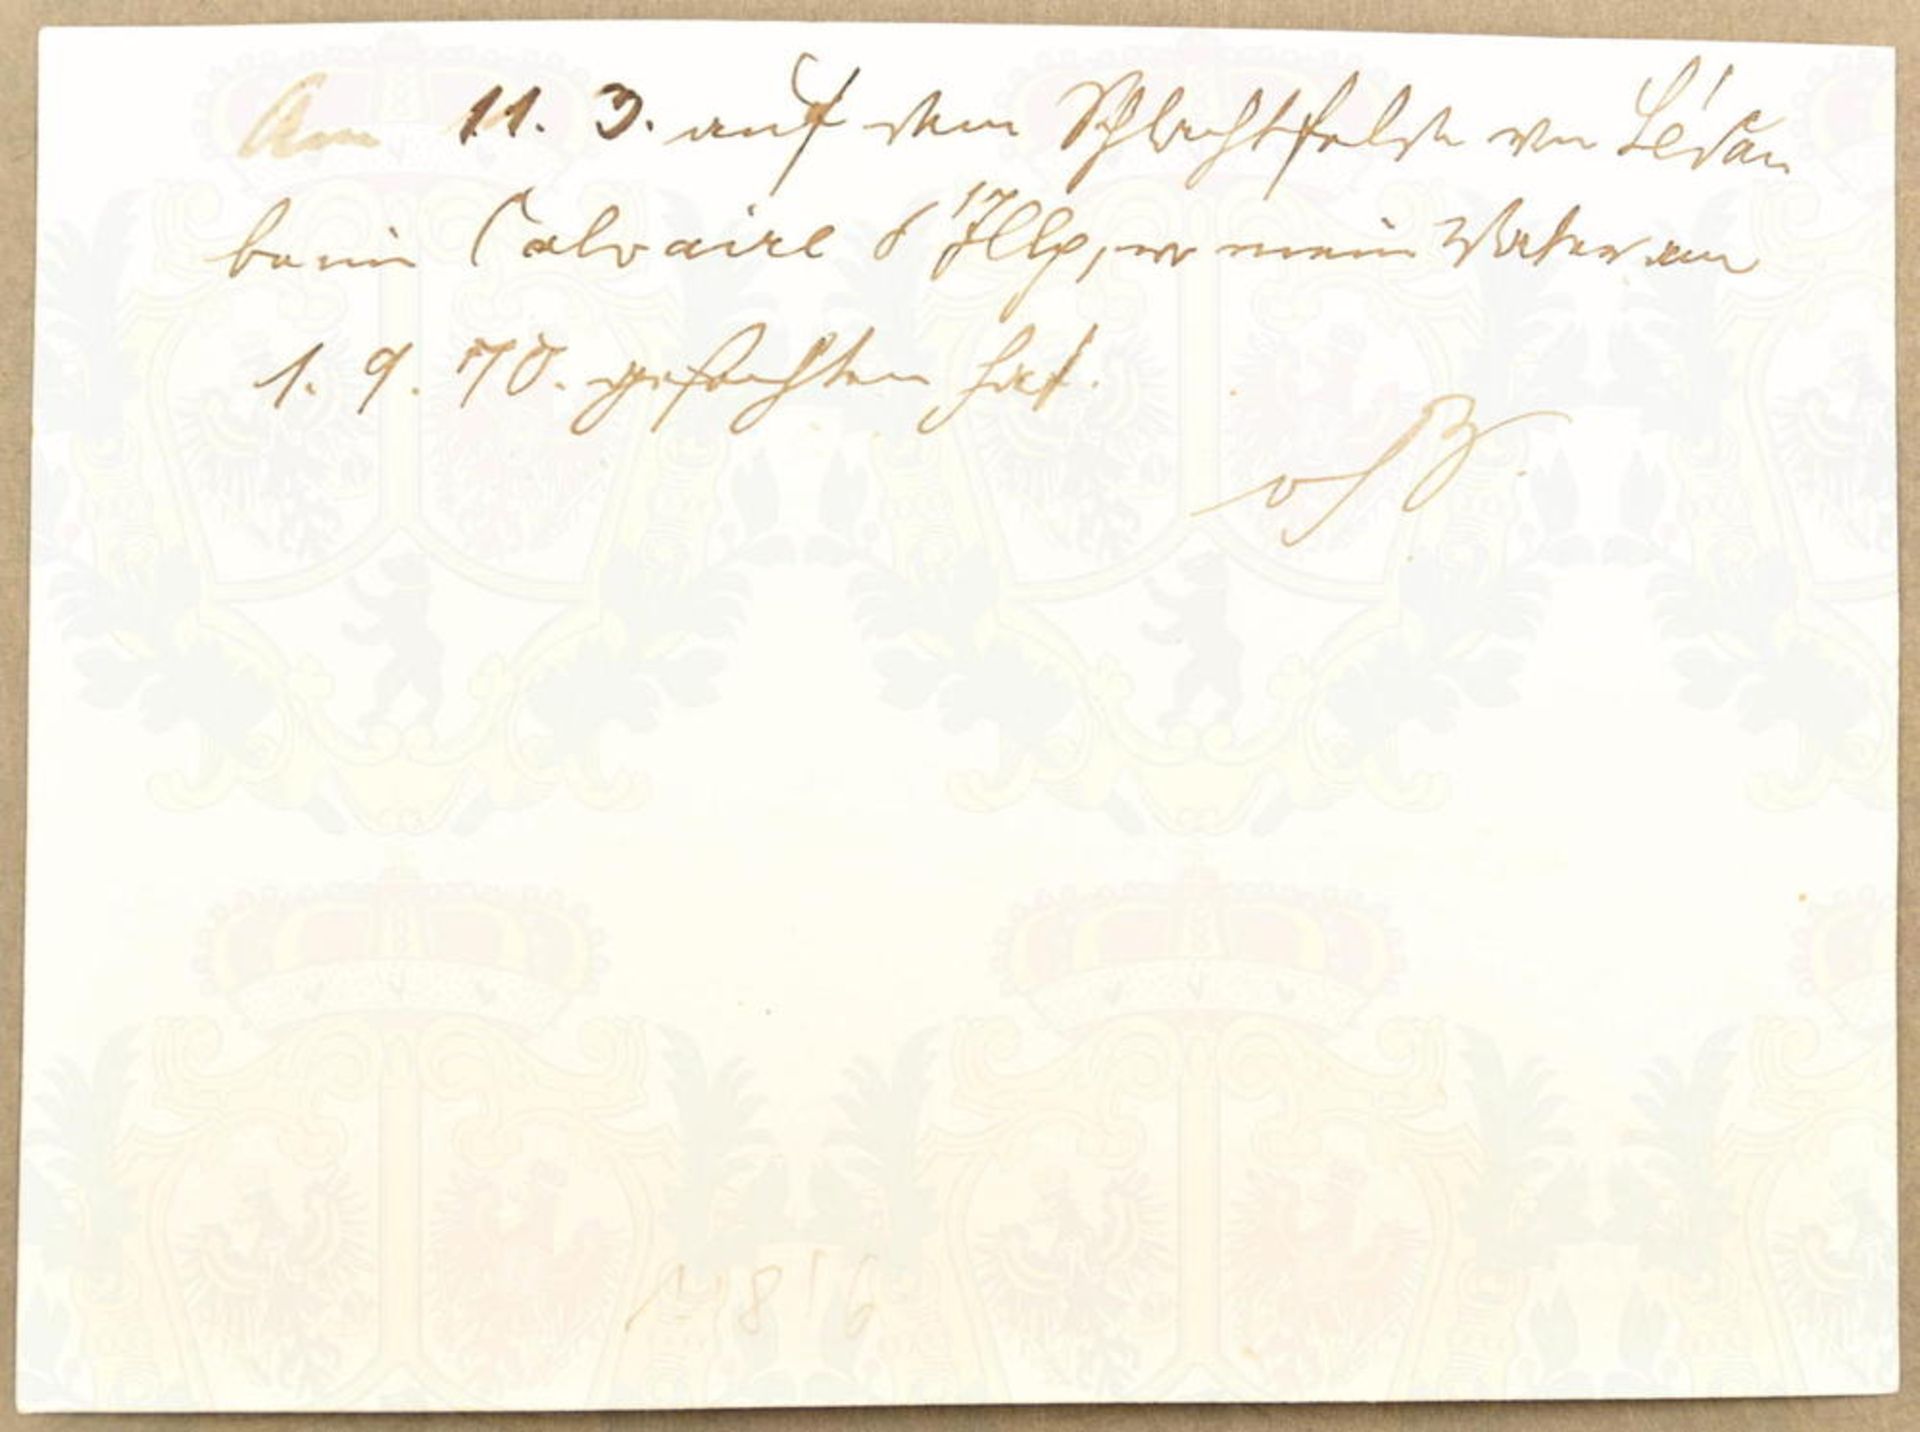 Am 11. 3. auf dem Schlachtfelde von Sédan
beim Calvaire d'Illy, wo mein Vater am
1. 9. 70. gefochten hat.